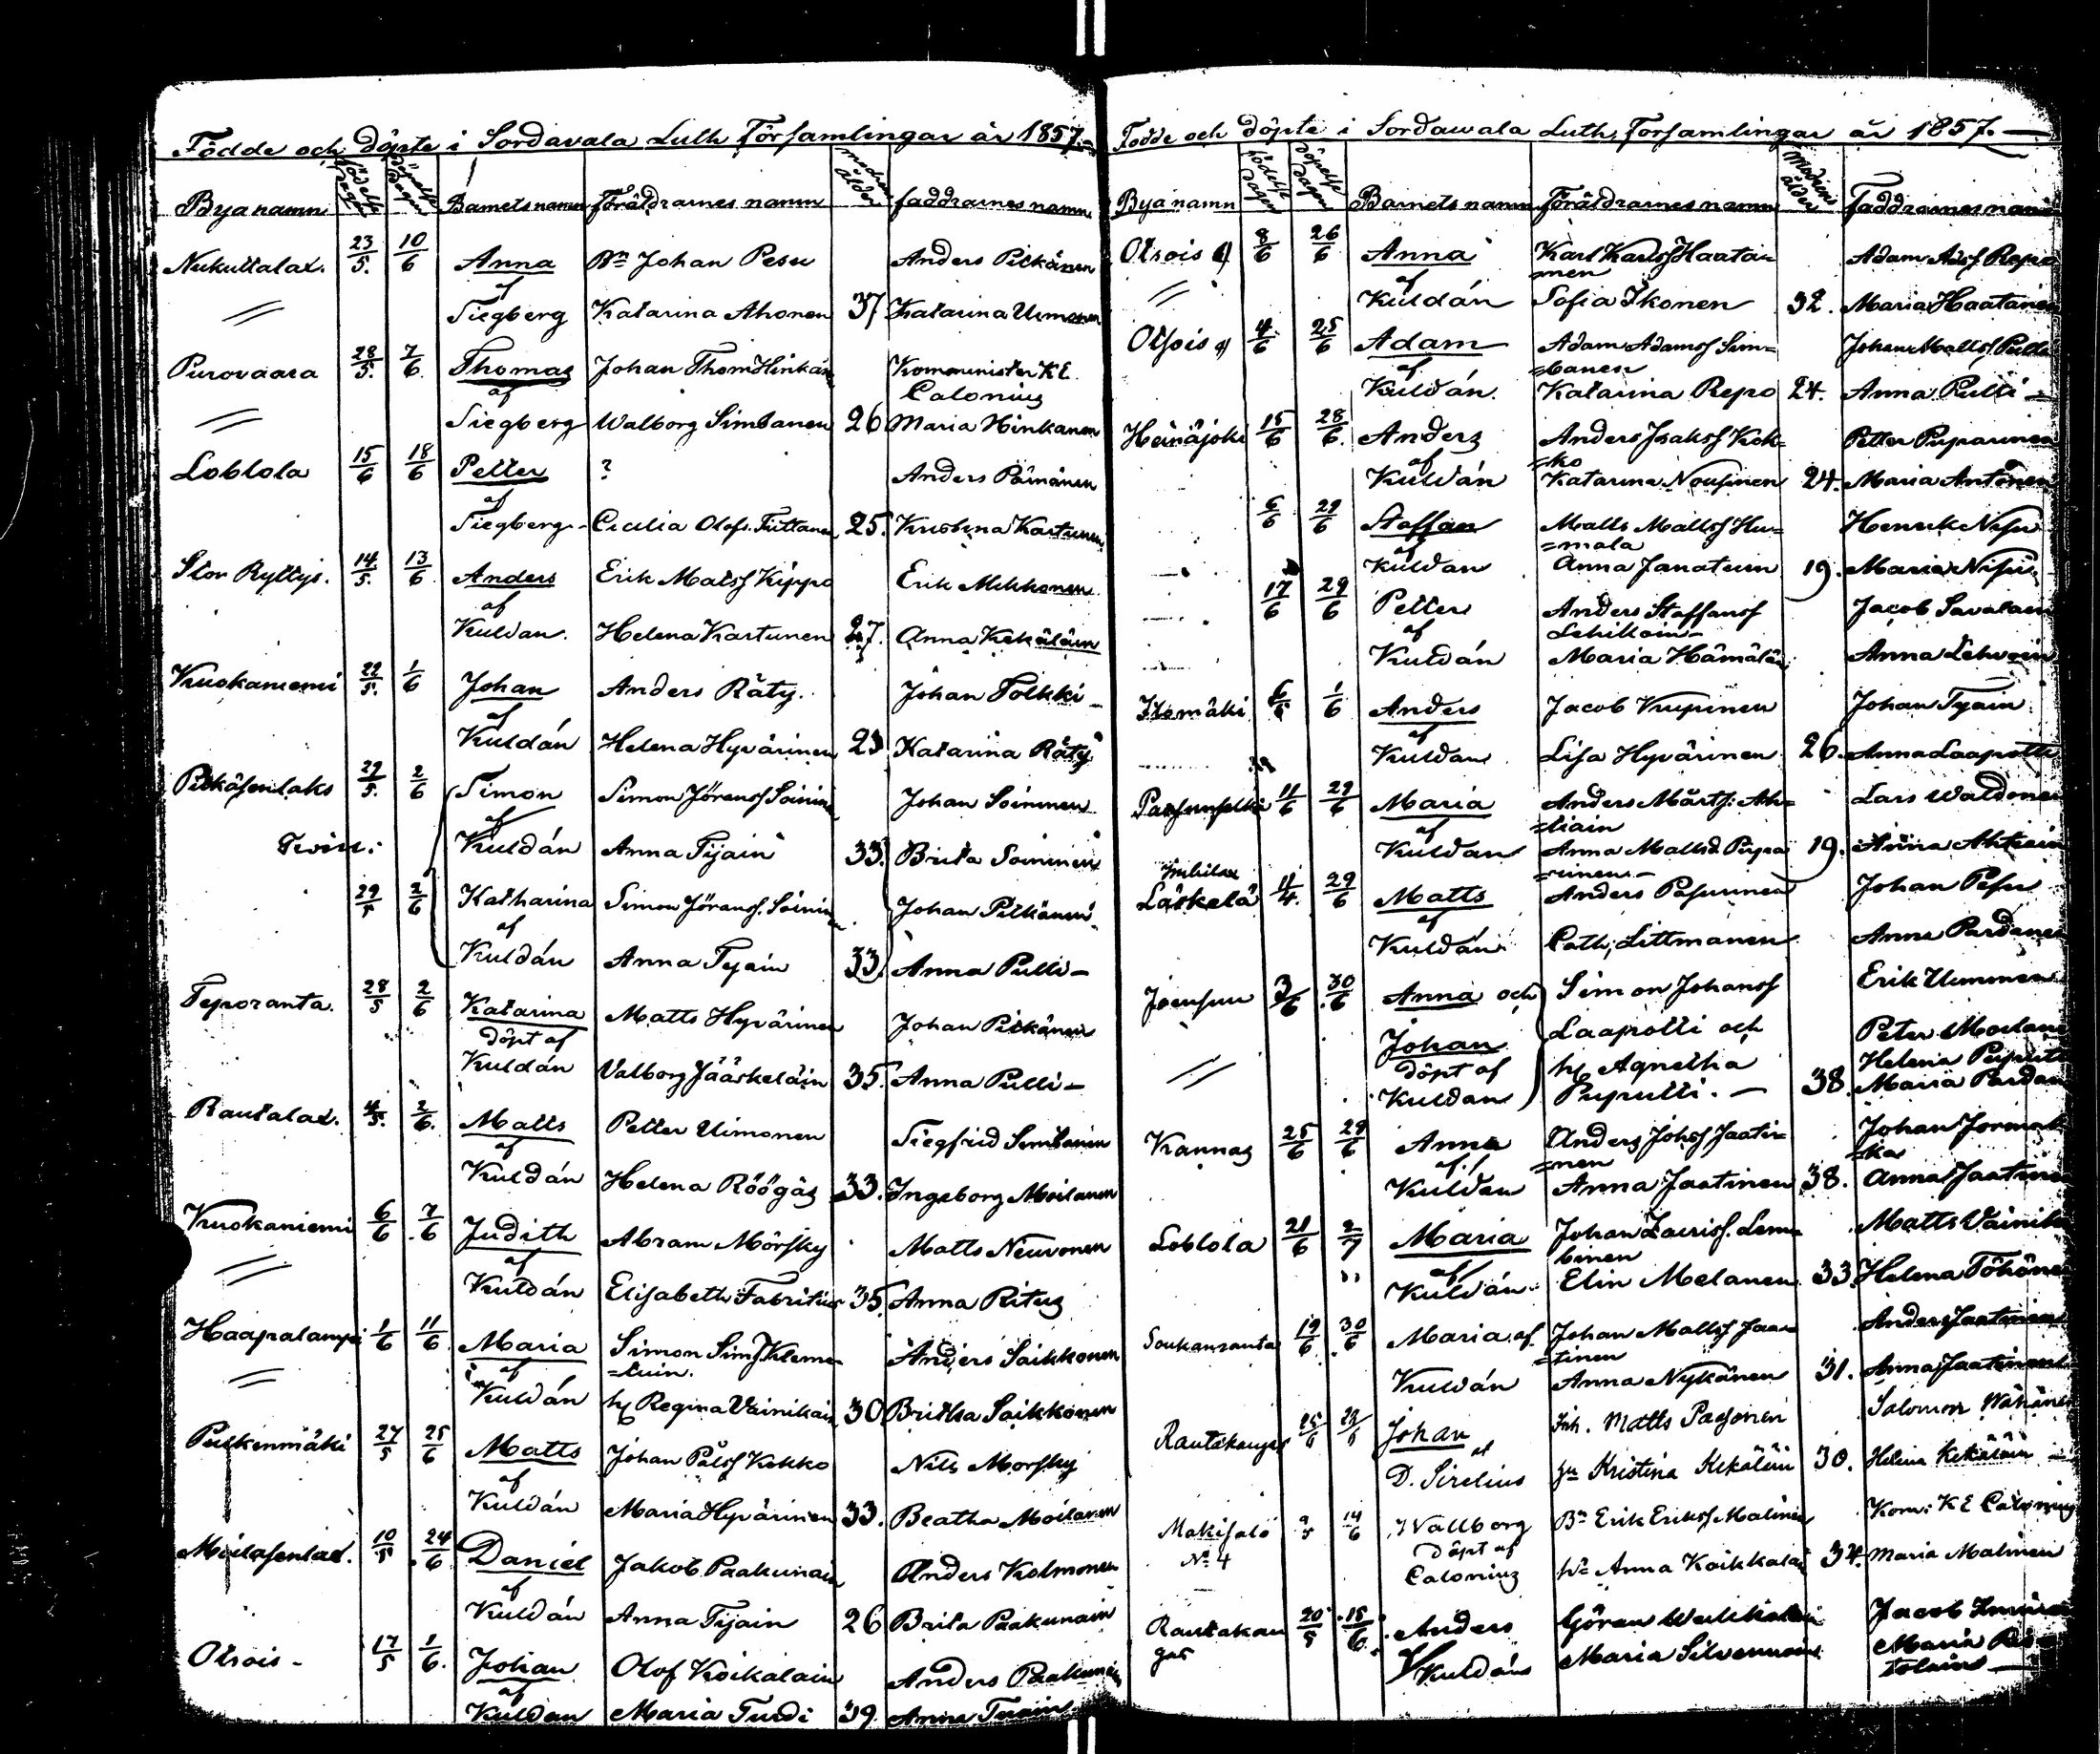 Födde och döpte i Sordavala Luth Församlingar år 1857.
Byanamn födelse dagen döpelse dagen Barnets namn Föräldrarnes namn modrens ålder faddrarnes namn
Nukuttalax. 23/5. 10/6 Anna Bn Johan Pesu Anders Pitkänen
af
〃 Siegberg Katarina Ahonen 37 Katarina Uimonen
Purovaara 28/5. 7/6. Thomas Johan Thom Hinkanen Komminister K E
af Calonius
〃 Siegberg Walborg Simbanen 26 Maria Hinkanen
Loblola 15/6 18/6 Petter ? Anders Päinänen
af
Siegberg Cecilia Olofs. 25. Kristina Kartunen
Stor Ryttys. 14/5. 13/6 Anders Erik Matsf Kippo Erik Mikkonen
af
Kuldan. Helena Kartunen 27. Anna Kekäläin
Kuokaniemi 22/5. 1/6 Johan Anders Räty. Johan Tolkki
af
Kuldán Helena Hyvärinen 23 Katarina Räty
Pitkäsenlaks 29/5. 2/6 Simon Simon Jöransf Soininen Johan Soininen
af
Twin: Kuldán Anna Tijain 33. Brita Soininen
29/5 2/6 Katharina Simon Jöransf. Soininen Johan Pitkänen
af
Kuldán Anna Tyain 33. Anna Pulli
Teporanta. 28/5 2/6 Katarina Matts Hyvärinen Johan Pitkänen
döpt af
Kuldán Valborg Jääskeläin 35. Anna Pulli
Rautalax. 4/5. 2/6. Matts Petter Uimonen Siegfrid Simbanen
af
Kuldán Helena Röögäs 33. Ingeborg Moilanen
Kuokaniemi 6/6 7/6 Judith Abram Mörsky Matts Neuvonen
af
〃 Kuldán Elisabeth Fabritius 35. Anna Ritus
Haapalampi 1/6 11/6 Maria Simon Simsf Kleme- Anders Saikkonen
af =tuin.
〃 Kuldán h Regina Väinikain 30 Britha Saikkonen
Puikenmäki 27/5 25/6 Matts Johan Pålsf Kokko Nils Morsky
af
Kuldán Maria Hyvärinen 33. Beatha Moilanen
10/5 24/6 Daniel Jakob Paakunain Anders Kolmonen
af
Kuldán Anna Tijain 26 Brita Paakunain
Otsois 17/5 1/6. Johan Olof Koikalain Anders Paakunain
af
Kuldan Maria Turdi 39. Anna Tuain
Födde och döpte i Sordawala Luth, Forsamlingar år 1857.
Byanamn födelse dagen döpelse dagen Barnets namn Föräldrarnes namn modrens ålder Faddrarnes namn
Otsois 8/6 26/6 Anna Karl Karlsf Haata= Adam Adsf Repo
af nen
〃 Kuldán Sofia Ikonen 32. Maria Haatanen
Otsois 4/6 25/6 Adam Adam Adamsf Sim= Johan Mattsf. Pulli
af =banen
Kuldán. Katarina Repo 24. Anna Pulli
Heinäjoki 15/6 28/6. Anders Anders Isaksf Kok= Petter Puparinen
af =ko
Kuldán Katarina Nousinen 24. Maria Antonen
6/6 29/6 Staffan Matts Mattsf Hu= Henrik Nisu
af =mala
Kuldan Anna Janatuin 19. Maria Nisu
17/6 29/6 Petter Anders Staffansf Jacob Savalain
af Lehikoin
Kuldán Maria Hämäläin Anna Lehvoin
Itämäki 6/6 1/6 Anders Jacob Kupinen Johan Tyain
af
Kuldan Lisa Hyvärinen 26. Anna Laapotti
11/6 29/6 Maria Anders Mårtsf. Ah= Lars Waldonen
af =tiain
Kuldan Anna Mattsd. Pupa 19. Anna Ahtiain
=rinen
Läskelä 11/4. 29/6 Matts Anders Pasunen Johan Pesu
af
Kuldán Cath, Littmanen Anna Pardanen
Joensuu 3/6 30/6 Anna och Simon Johansf Erik Uimonen
Johan Laapotti och Peter Moilanen
döpt af h Agnetha Helena Puputti
〃 Kuldan Puputti. 38. Maria Pardanen
Kannas 25/6 29/6 Anna Anders Johsf Jaati= Johan Jormak
af =nen =ka
Kuldan Anna Jaatinen 38. Anna Jaatinen
Loblola 21/6 2/7 Maria Johan Laurisf. Lem= Matts Väinik
af binen
Kuldán Elin Melanen 33. Helena Töhönen
Soukanranta 19/6 30/6 Maria af Johan Mattsf Jaa= Anders Jaatinen
=tinen
Kuldán Anna Nykänen 31. Anna Jaatinen
Rautakangas 25/6 28/6 Johan Inh. Matts Paasonen Salomon Wänänen
af
D. Sirelius hu Kristina Kekäläin 30. Helena Kekäläin
Makisalo 9/5 14/6 Wallborg Bn Erik Eriksf Malinen Kom: K E Calonius
No 4 döpt af
Calonius hu Anna Koikkalain 34. Maria Malinen
Rautakan 20/5 15/6 Anders Göran Jacob
gas Kuldán Maria Silvennoin Maria Pis
tolain